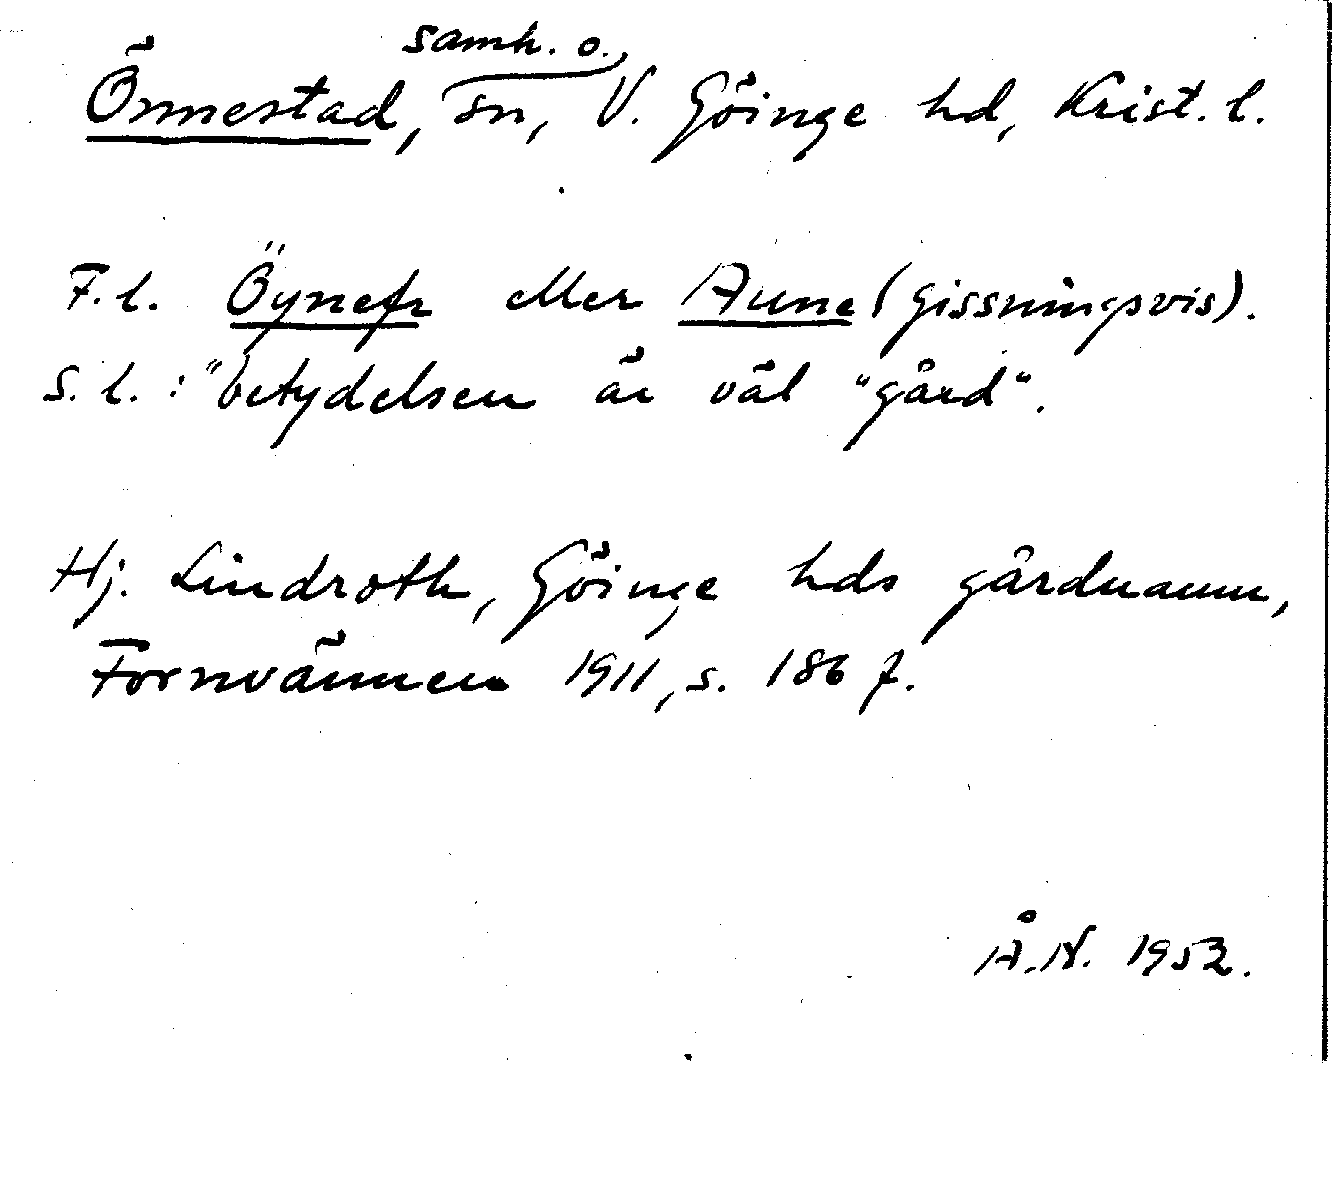 samh. o.
Önnestad, sn, V. Göinge hd, Krist. l.
F.l. Öynefr eller Aune (gissningsvis).
S.l.: "betydelsen är väl "gård".
Hj. Lindroth, Göinge hds gårdnamn,
Fornvännen 1911, s. 186 f.
Å.N. 1952.